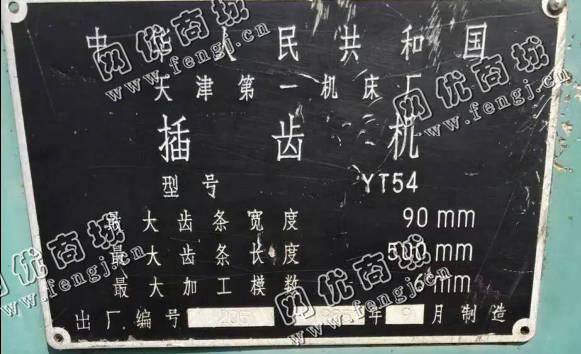 中华人民共和国
天津第一机床厂
插齿机
型号 YT54
最大齿条宽度 90 mm
最大齿条长度 500 mm
最大加工模数 6 mm
出厂编号 年9月制造
网优商城
www.fengj.com
网优商城
www.fengj.com
网优商城
www.fengj.com
网优商城
www.fengj.com